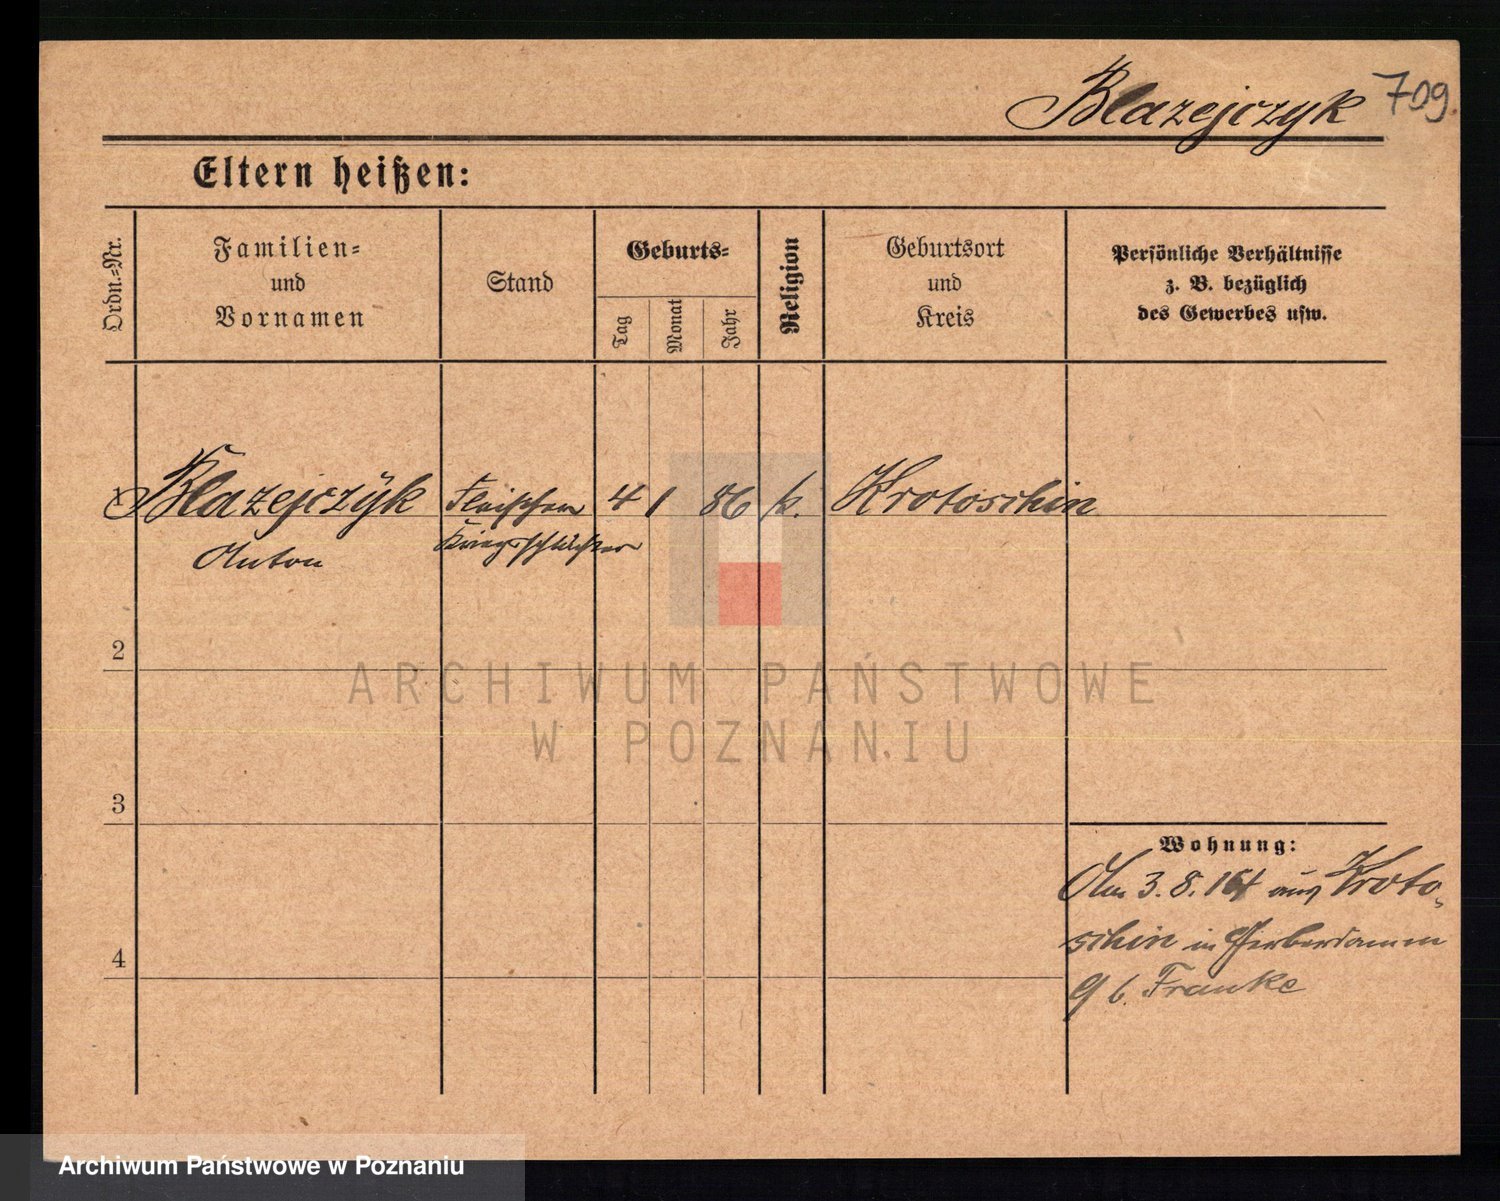 Blazejczyk 709.
Eltern heißen:
Ordn.-Nr.
Familien-
und
Vornamen
Stand
Geburts-
Tag
Monat
Jahr
Religion
Geburtsort
und
Kreis
Persönliche Verhältnisse
z. B. bezüglich
des Gewerbes usw.
Blazejczÿk
Anton
4 1 86 k. Krotoschin
2
3
4
Wohnung:
3. 8. aus Kroto-
schin in
9 b. Franke
ARCHIWUM PAŃSTWOWE
W POZNANIU
Archiwum Państwowe w Poznaniu